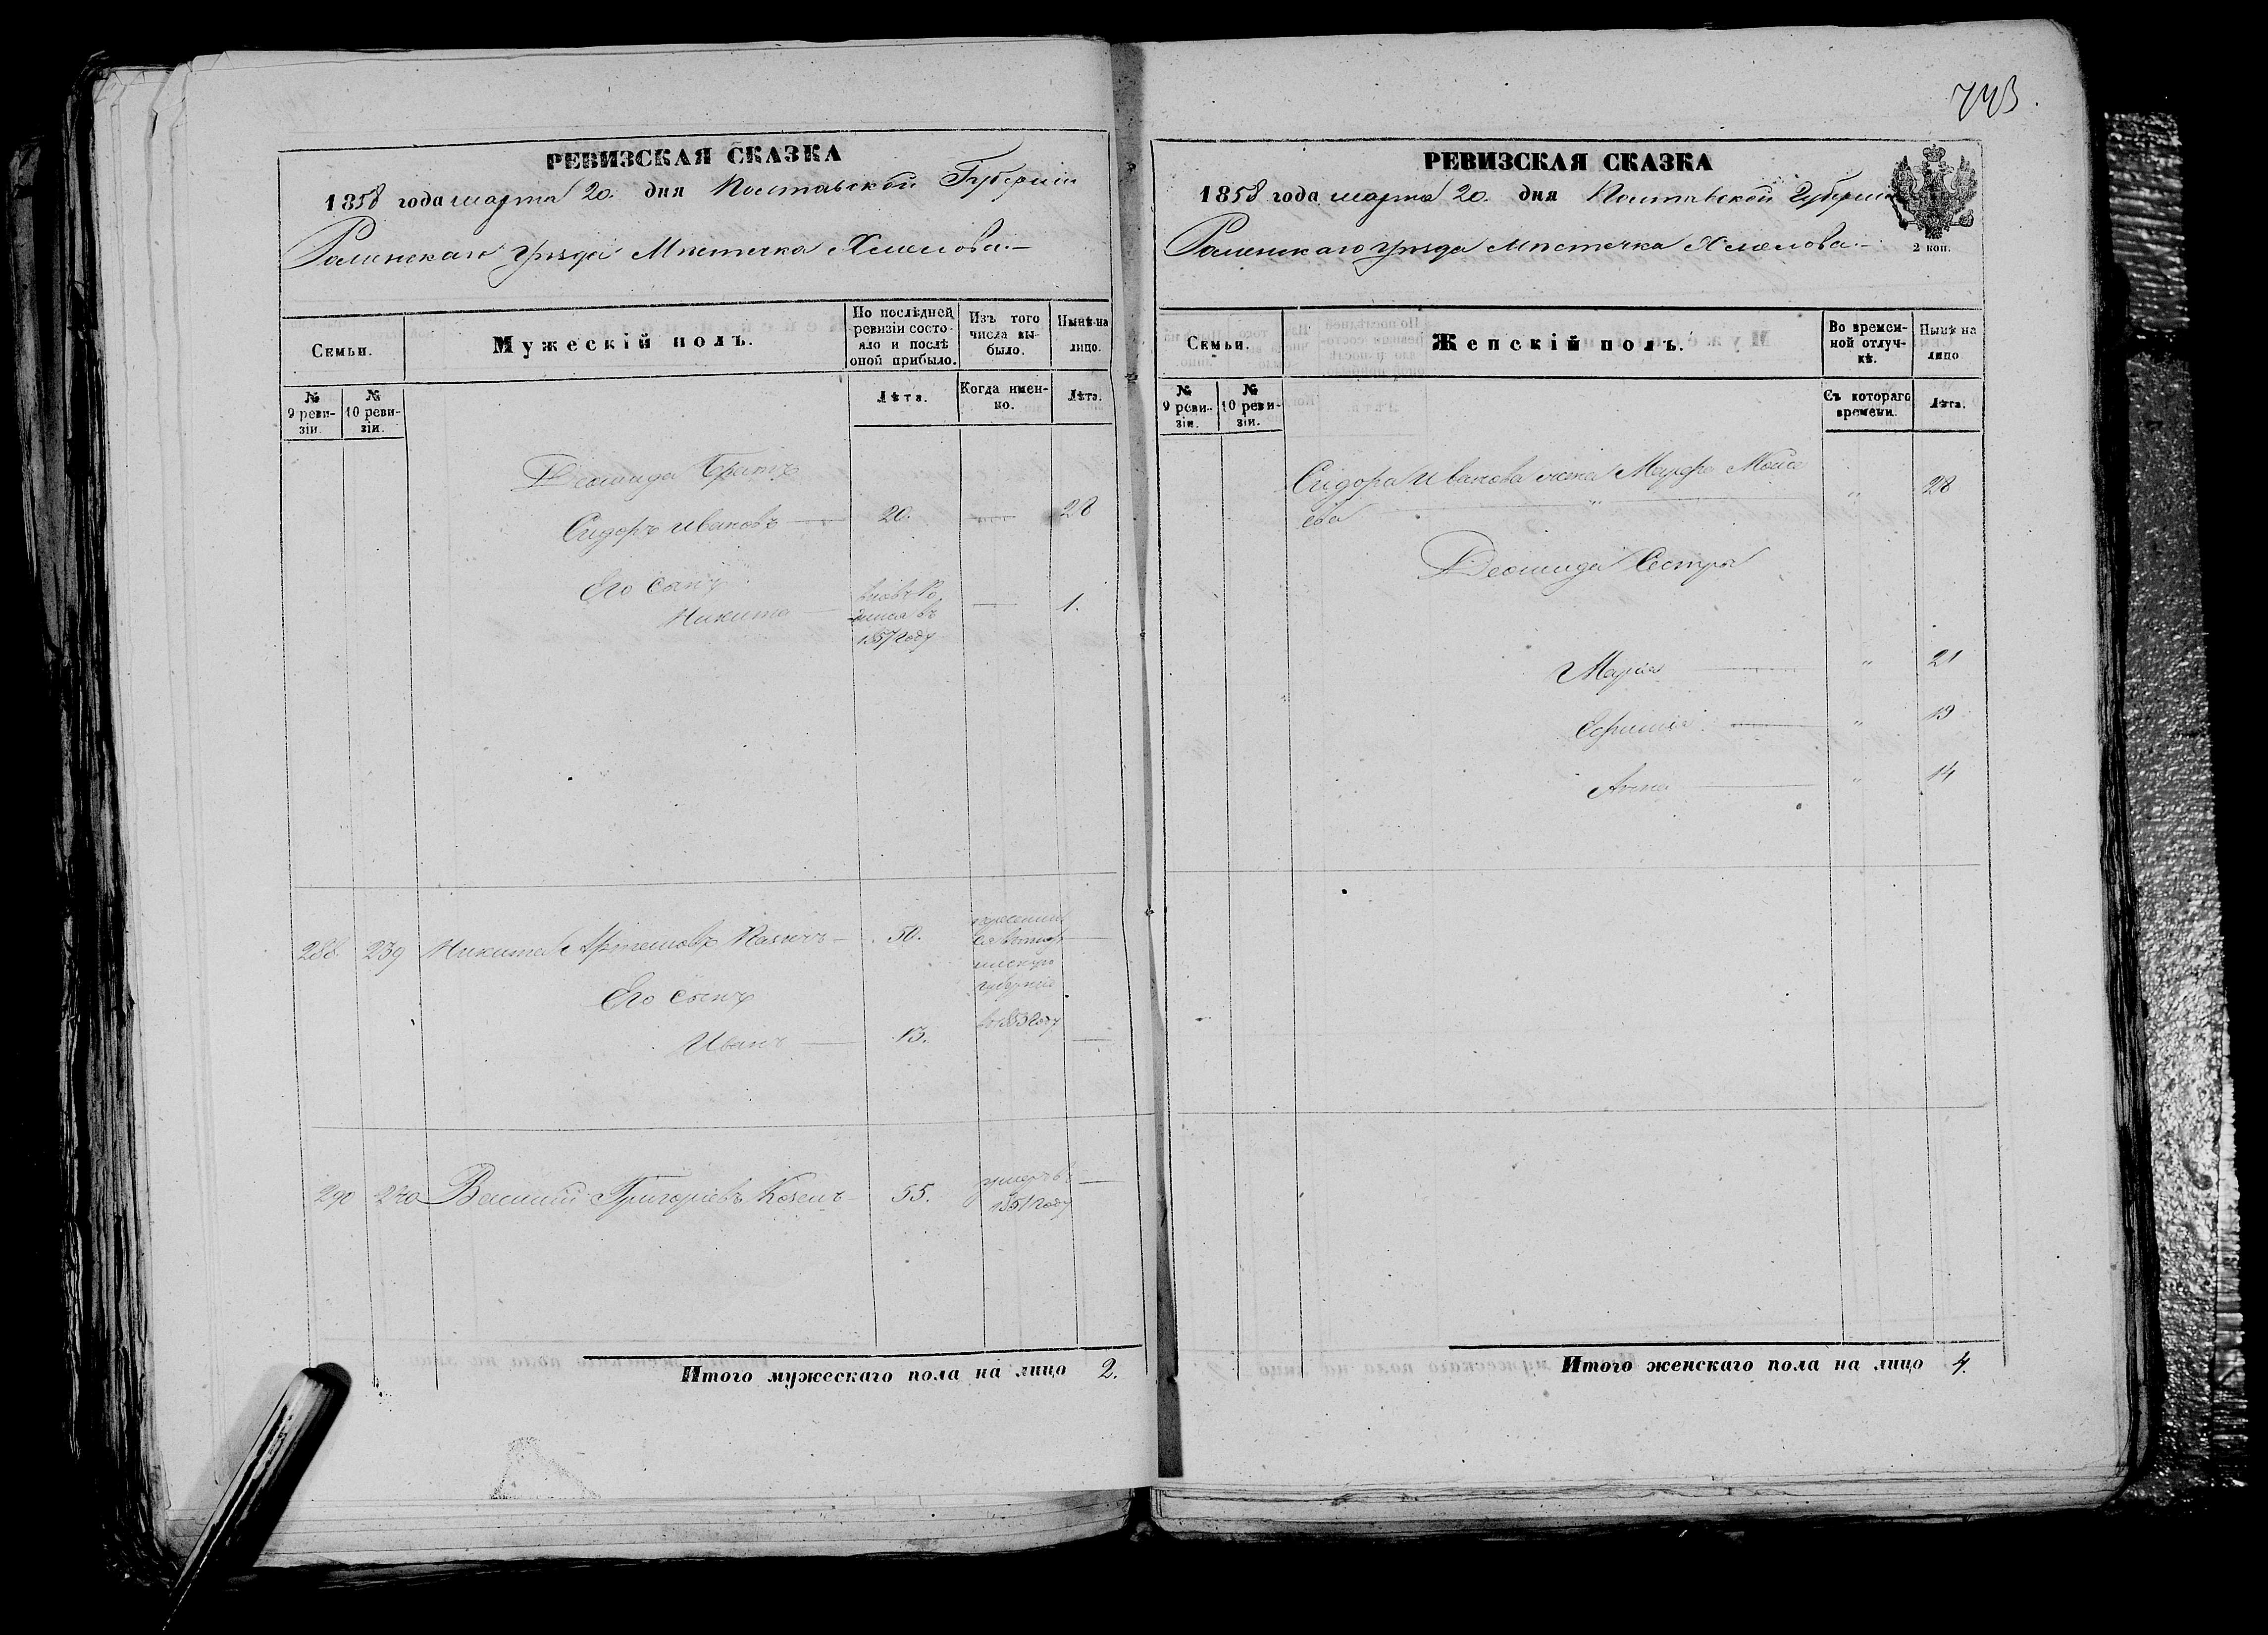 743.
РЕВИЗСКАЯ СКАЗКА
1858 года марта 20. дня Полтавской Губернии
Роменскаго уезда Местечка Хмелова.—
Семьи.
Мужескій полъ.
По послѣдней ревизіи состояло и послѣ оной прибыло.
Изъ того числа выбыло.
Нынѣ на лицо.
№ 9 ревизіи.
№ 10 ревизіи.
Лѣта.
Когда именно.
Лѣта.
Леонида Братъ
Сидоръ Ивановъ — 20. — 28
Его Сынъ
Никита — 1.
въ
1857 году
288. 239 Никита Артемовъ — 50.
губернію
Его Сынъ
Иванъ — 13. — въ 1853 году —
290 240 Василий Григоріевъ Козелъ 55. умеръ въ —
1851 году
Итого мужескаго пола на лицо 2.
РЕВИЗСКАЯ СКАЗКА
1858 года марта 20. дня Полтавской Губернии
Роменскаго уезда Местечка Хмелова.—
2 коп.
Семьи.
Женскій полъ.
Во временной отлучкѣ.
Нынѣ на лицо
№ 9 ревизіи.
№ 10 ревизіи.
Съ котораго времени.
Лѣта.
Сидора Иванова жена Марфа Мойсе
ева — " 28
Леонида Сестры
Марія — " 21
Ефимія — " 19
Анна — " 14
Итого женскаго пола на лицо 4.